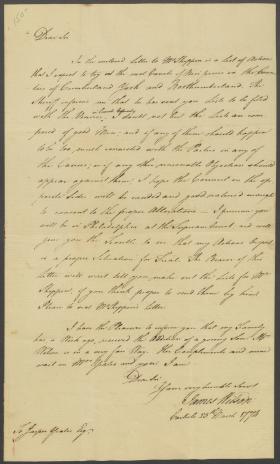 Dear Sir
In the enclosed Letter to Mr Skippen is a List of Actions
that I expect to try at the next Courts of Nisi prius in the Coun-
ties of Cumberland York and Northumberland. The
Sheriff informs me that he has sent you Lists to be filled
with the Names. I doubt not but the Lists are com
posed of good Men; and if any of them should happen
to be too much connected with the Parties in any of
the Causes, or if any other reasonable Objection should
appear against them, I hope the Counsel on the op
posite Side will be candid and good natured enough
to consent to the proper Alterations — I presume you
will be in Philadelphia at the Supreme Court and will
give you the Trouble to see that my Actions be put
in a proper Situation for Trial. The Bearer of this
Letter will wait till you make out the Lists for Mr
Skippen, if you think proper to send them by him.
Please to read Mr Skippens Letter.
I have the Pleasure to inform you that my Family
has a Week ago, received the Addition of a young Son. Mrs
Wilson is in a very fair Way. Her Compliments and mine
wait on Mrs Yeates and you. I am
Dear Sir
Your very humble Servt
James Wilson
Carlisle 25th March 1774
To Jasper Yeates Esqr